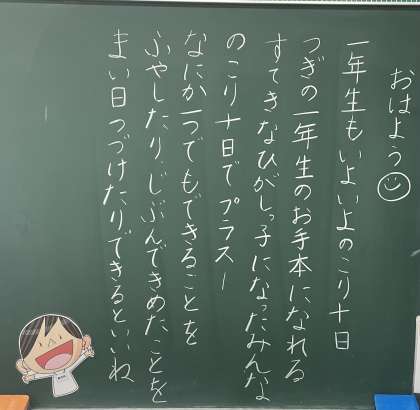 おはよう
一年生もいよいよのこり十日
つぎの一年生のお手本になれる
すてきなひがしっ子になったみんな
のこり十日でプラス一
なにか一つでもできることを
ふやしたりじぶんできめたことを
まい日つづけたりできるといいね